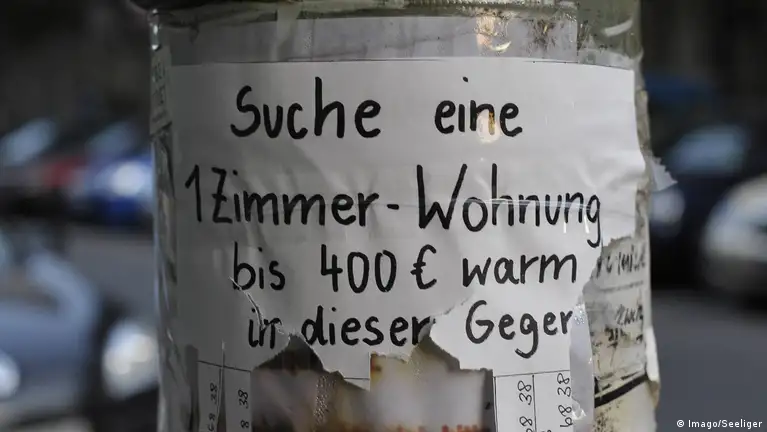 Suche eine
1 Zimmer-Wohnung
bis 400 € warm
in dieser Gegen
38
8 38
38
68 38
© Imago/Seeliger